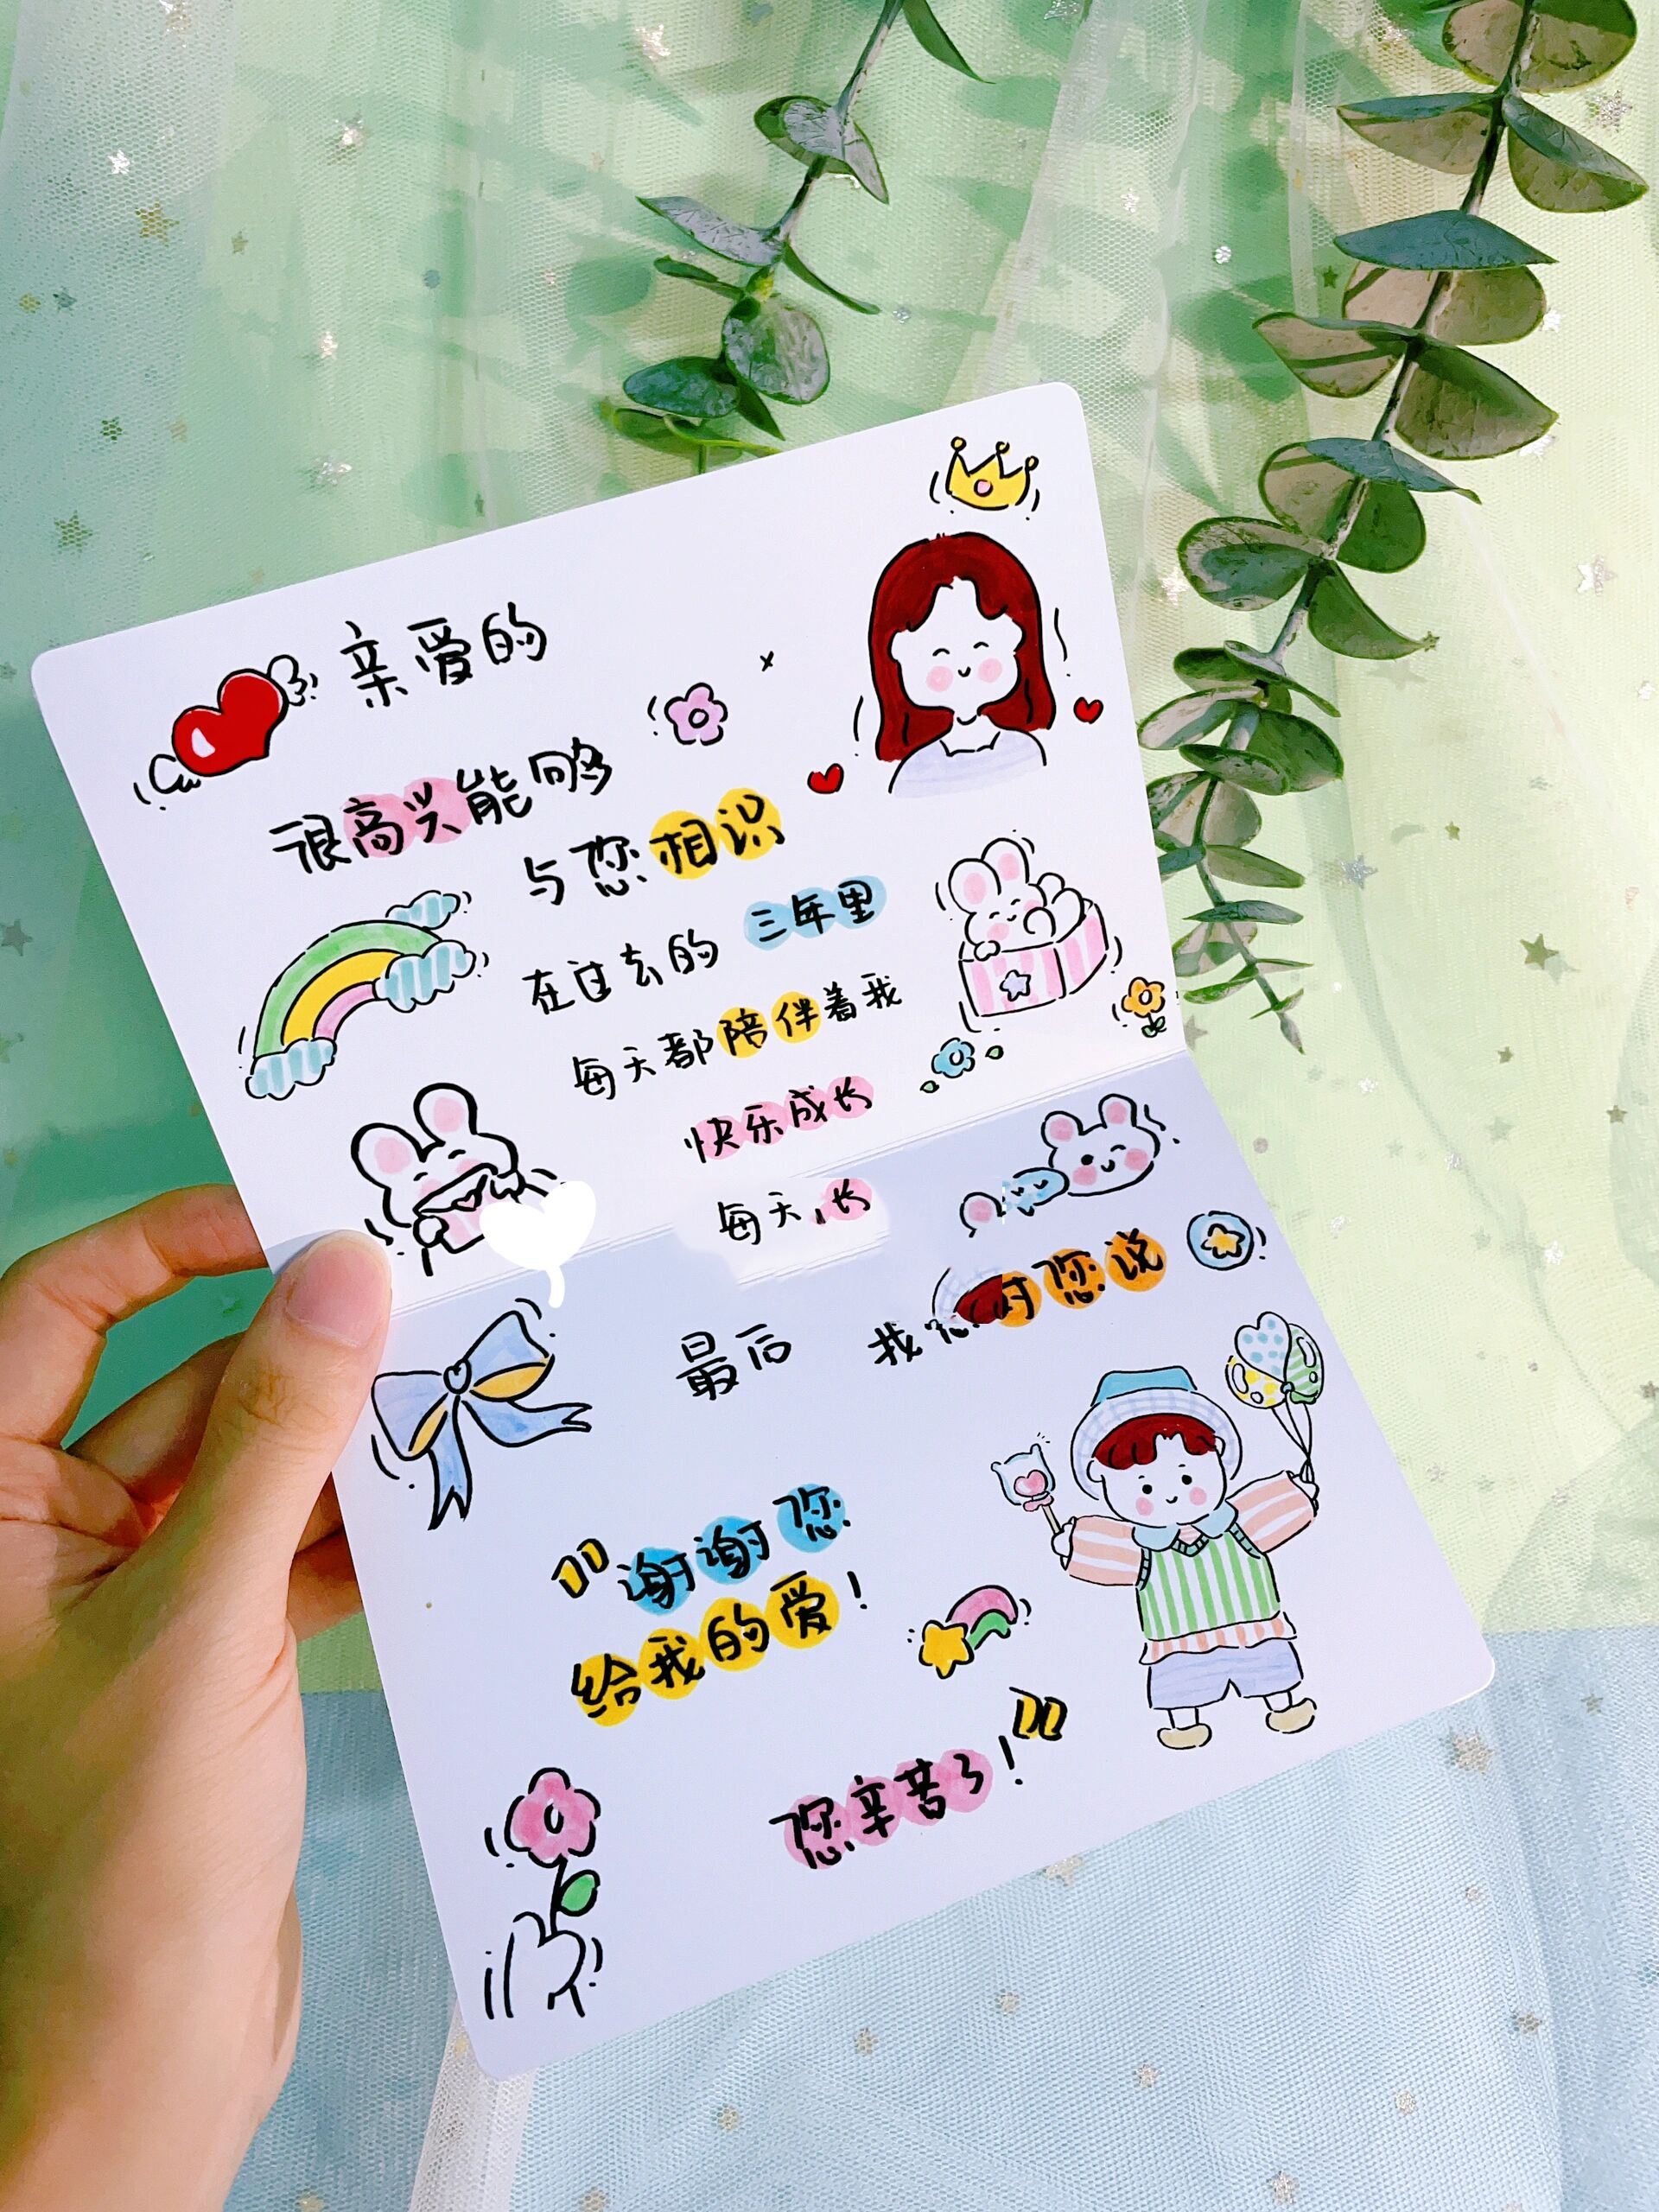 亲爱的
很高兴能够
与您相识
在过去的三年里
每天都陪伴着我
快乐成长
每天长
最后 我 对您说
"谢谢您
给我的爱!
您辛苦了!"